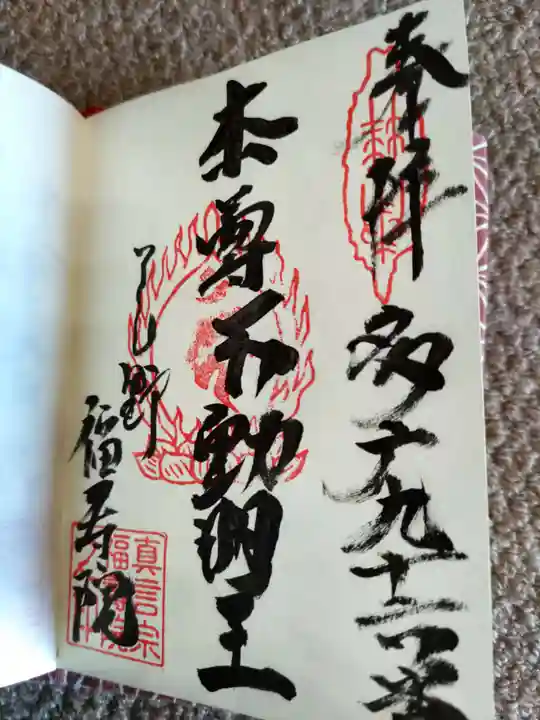 奉拝
多摩九十六番
本尊不動明王
高野
福寿院
真言宗
福寿院